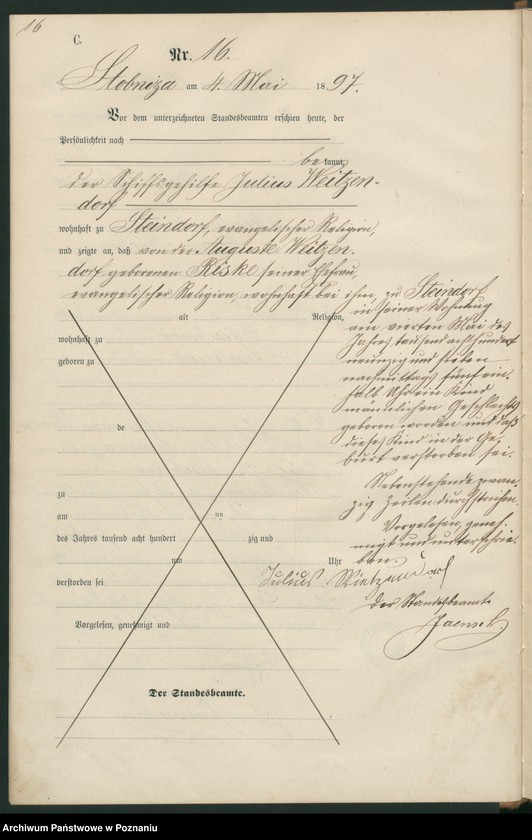 16
C.
Nr. 16.
Stobnica am 4. Mai 1897.
Vor dem unterzeichneten Standesbeamten erschien heute, der
Persönlichkeit nach
be kannt,
der Schiffsgehilfe Julius Weitzen-
dorf
wohnhaft zu Steindorf, evangelischer Religion,
und zeigte an, daß von der Auguste Weitzen-
dorf geborenen Riske seiner Ehefrau,
evangelischer Religion, wohnhaft bei ihm, zu Steindorf
in seiner Wohnung
am vierten Mai des
Jahres tausend acht hundert
neunzig und sieben
nachmittags fünf ein-
halb Uhr ein Kind
männlichen Geschlechts
geboren worden und daß
dieses Kind in der Ge-
burt verstorben sei.
Nebenstehende zwan-
zig Zeilen durchstrichen.
Vorgelesen, geneh-
migt und unterschrie-
ben.
Julius Wietzendorf
Der Standesbeamte
Jaensch.
alt Religion,
wohnhaft zu
geboren zu
de
zu
am ten
des Jahres tausend acht hundert zig und
um Uhr
verstorben sei
Vorgelesen, genehmigt und
Der Standesbeamte.
Archiwum Państwowe w Poznaniu